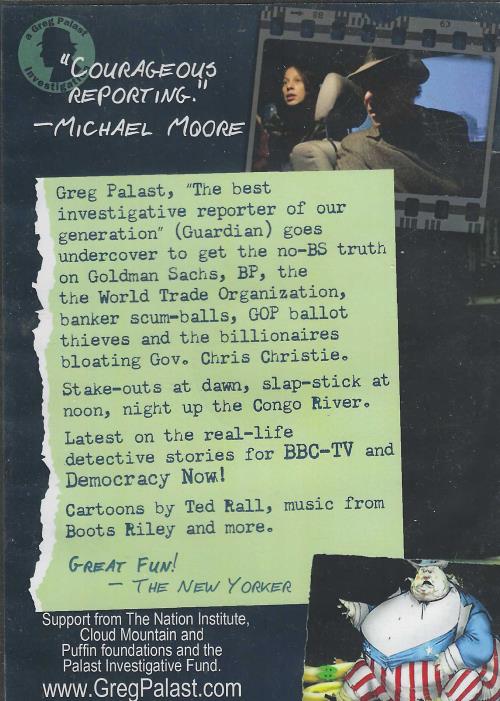 a Greg Palast
Investigation
"COURAGEOUS
REPORTING."
—MICHAEL MOORE
63
Greg Palast, "The best
investigative reporter of our
generation" (Guardian) goes
undercover to get the no-BS truth
on Goldman Sachs, BP, the
the World Trade Organization,
banker scum-balls, GOP ballot
thieves and the billionaires
bloating Gov. Chris Christie.
Stake-outs at dawn, slap-stick at
noon, night up the Congo River.
Latest on the real-life
detective stories for BBC-TV and
Democracy Now!
Cartoons by Ted Rall, music from
Boots Riley and more.
GREAT FUN!
— THE NEW YORKER
Support from The Nation Institute,
Cloud Mountain and
Puffin foundations and the
Palast Investigative Fund.
www.GregPalast.com